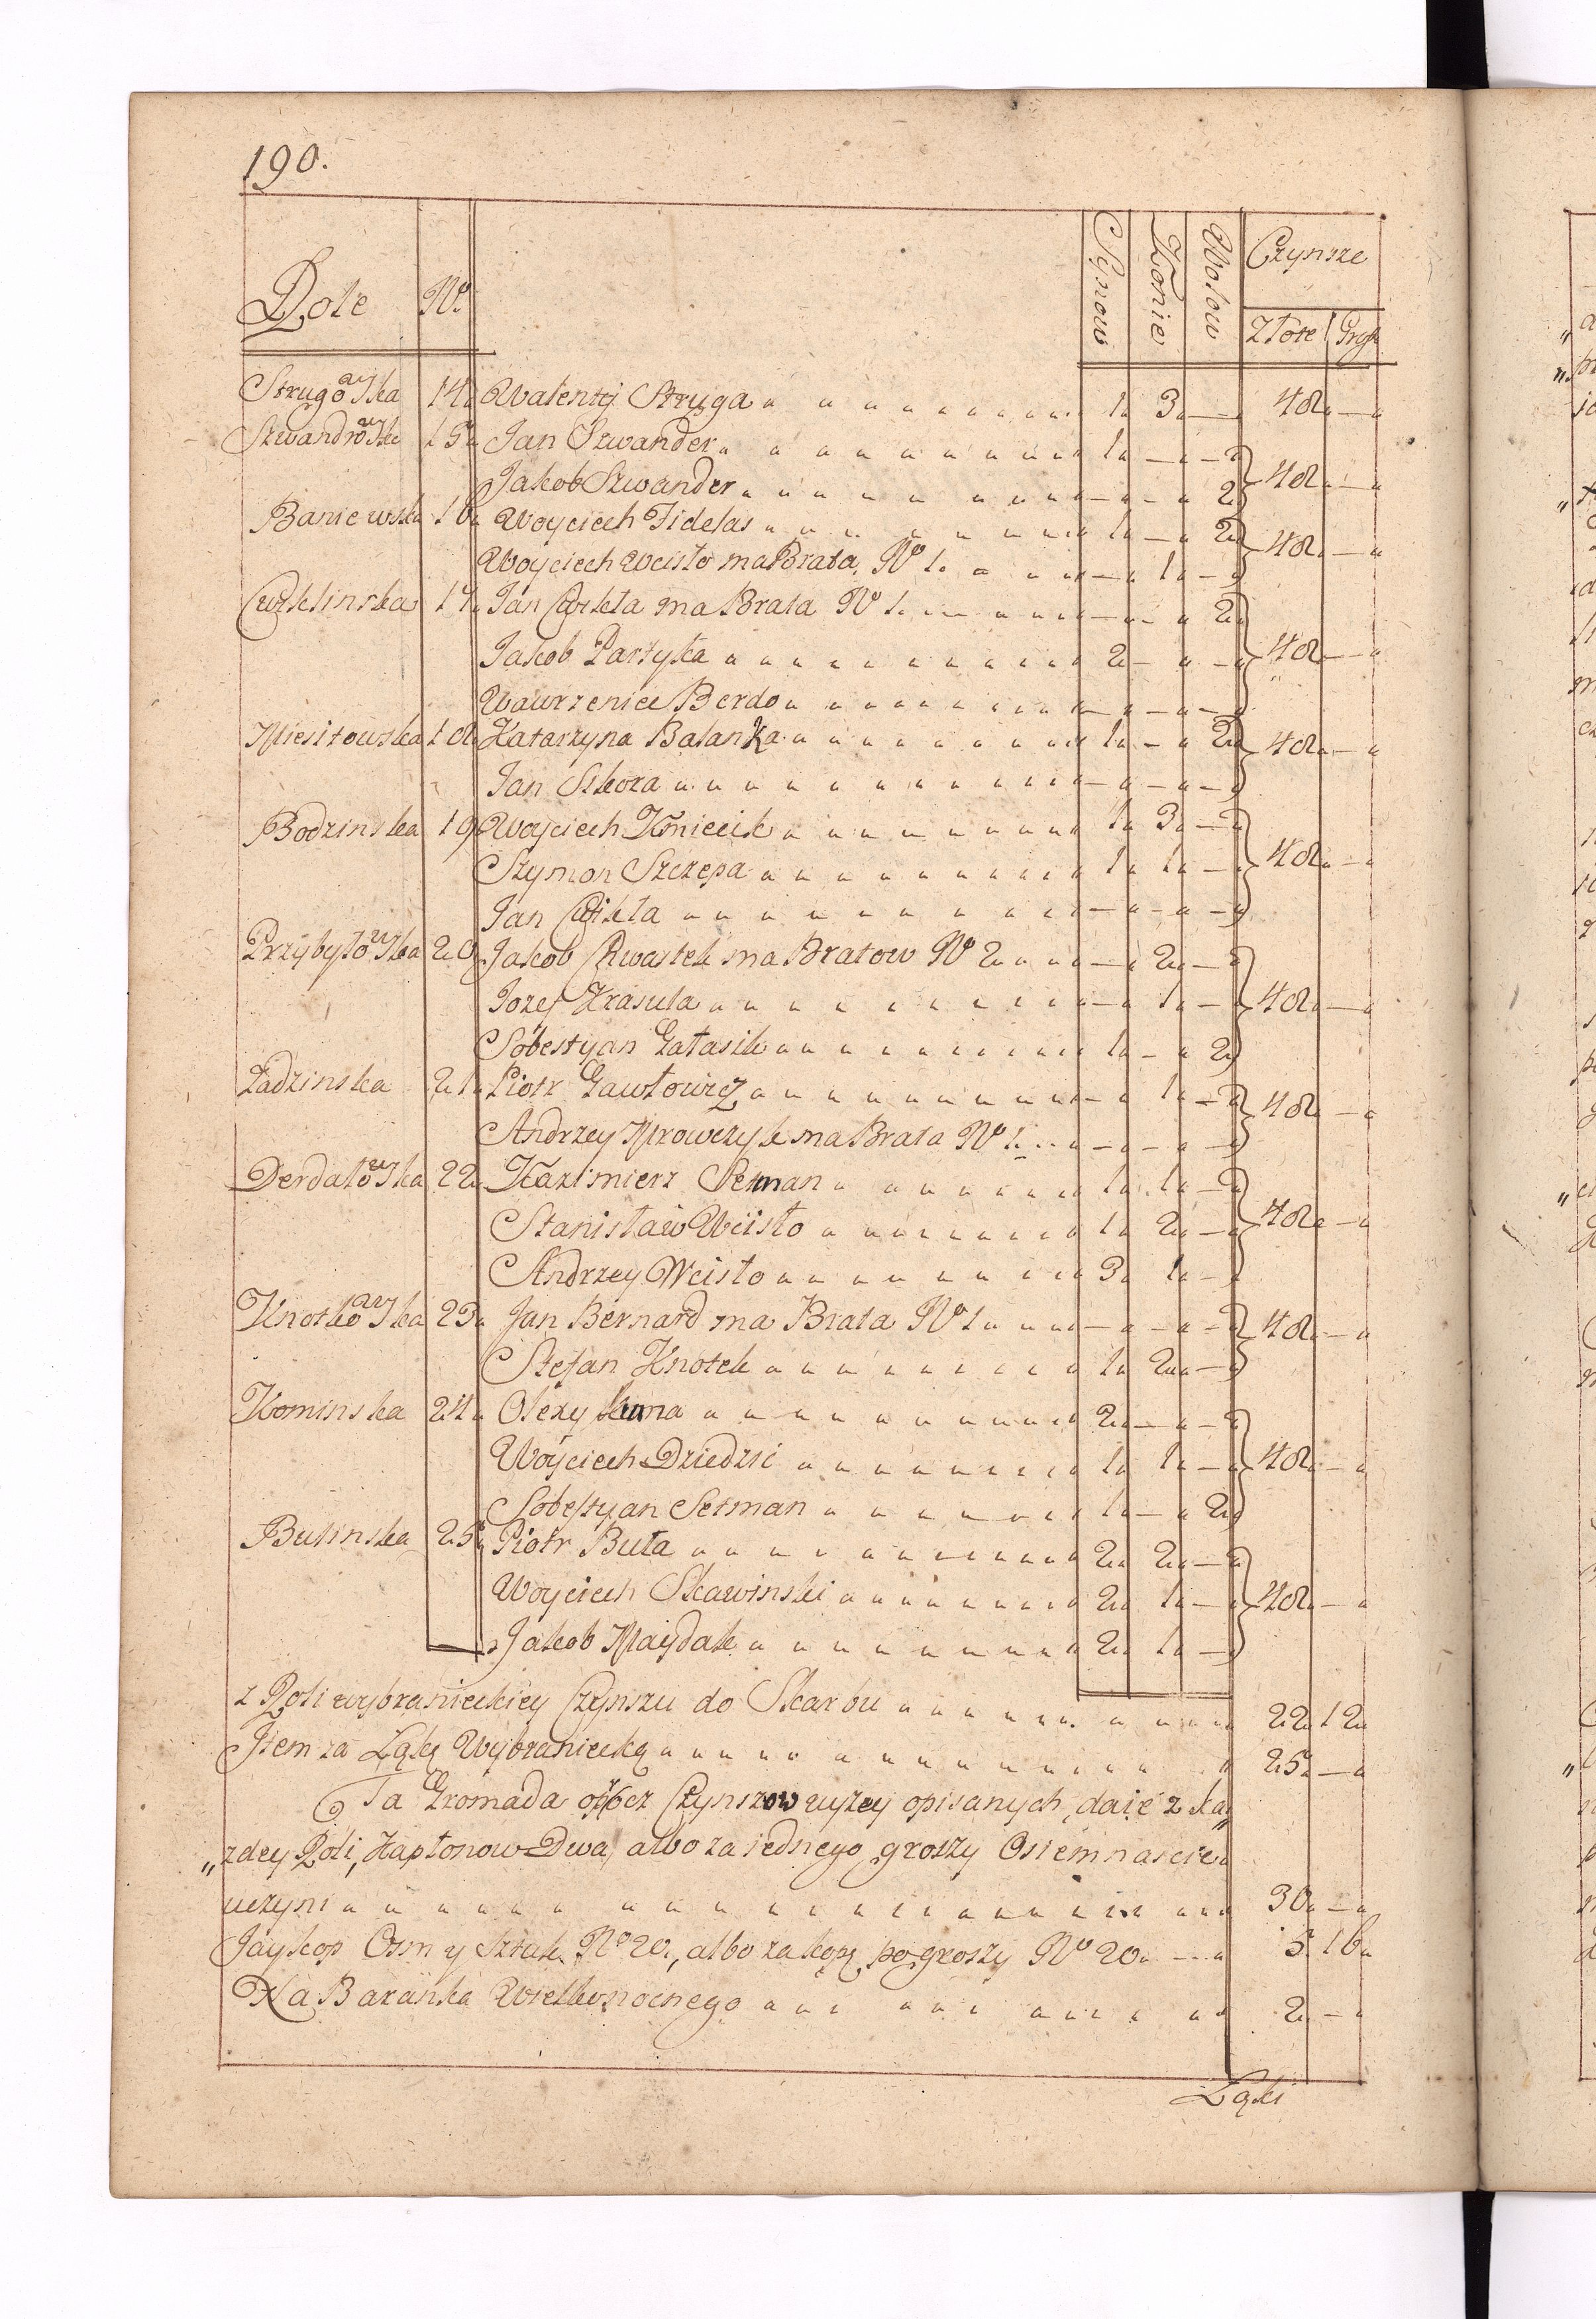 190.
Role No. Synow Konie Wołow Czynsze
Złote Grosze
Strugowska 14 Walenty Struga 1 3 — 48 —
Szwandrowska 15 Jan Szwander 1 — —
Jakob Szwander — — 2 48 —
Baniewska 16 Woyciech Fidelas 1 — 2 48 —
Woyciech Wcisło ma Brata No 1. — 1 —
Cwiklinska 17 Jan Cwikła ma Brata No 1. — — 2
Jakob Partyka 2 — — 48 —
Wawrzeniec Berdo — — —
Miesitowska 18 Katarzyna Balanka 1 — 2 48 —
Jan Skora — — —
Bodzinska 19 Woyciech Kmiecik 1 3 —
Szymon Szczepa 1 1 — 48 —
Jan Cwikła — — —
Przybyłowska 20 Jakob Chwastek ma Bratow No 2 — 2 —
Jozef Krasula — 1 — 48 —
Sobestyan Gałasik 1 — 2
Ładzinska 21 Piotr Gawłowicz — 1 — 48 —
Andrzey Mrowczyk ma Brata No 1. — — —
Derdałowska 22 Kazimierz Setman 1 1 —
Stanisław Wcisło 1 2 — 48 —
Andrzey Wcisło 3 1 —
Knotkowska 23 Jan Bernard ma Brata No 1 — — — 48 —
Stefan Knotek 1 2 —
Kominska 24 Olexy Kuma 2 — —
Woyciech Dziedzic 1 1 — 48 —
Sobestyan Setman 1 — 2
Bulinska 25 Piotr Buła 2 2 —
Woyciech Skawinski 2 1 — 48 —
Jakob Maydak 2 1 —
z Roli wybranieckiey Czynszu do Skarbu 22 12
Item za Łąkę Wybraniecką 25 —
Ta Gromada oprocz Czynszow wyzey opisanych, daie z ka„
„zdey Roli, Kapłonow Dwa, albo za iednego groszy Osiemnascie
uczyni 30 —
Jay kop Osm y Sztuk No 20, albo za kopę po groszy No 20 5 16
Na Baranka Wielkonocnego 2 —
Łąki